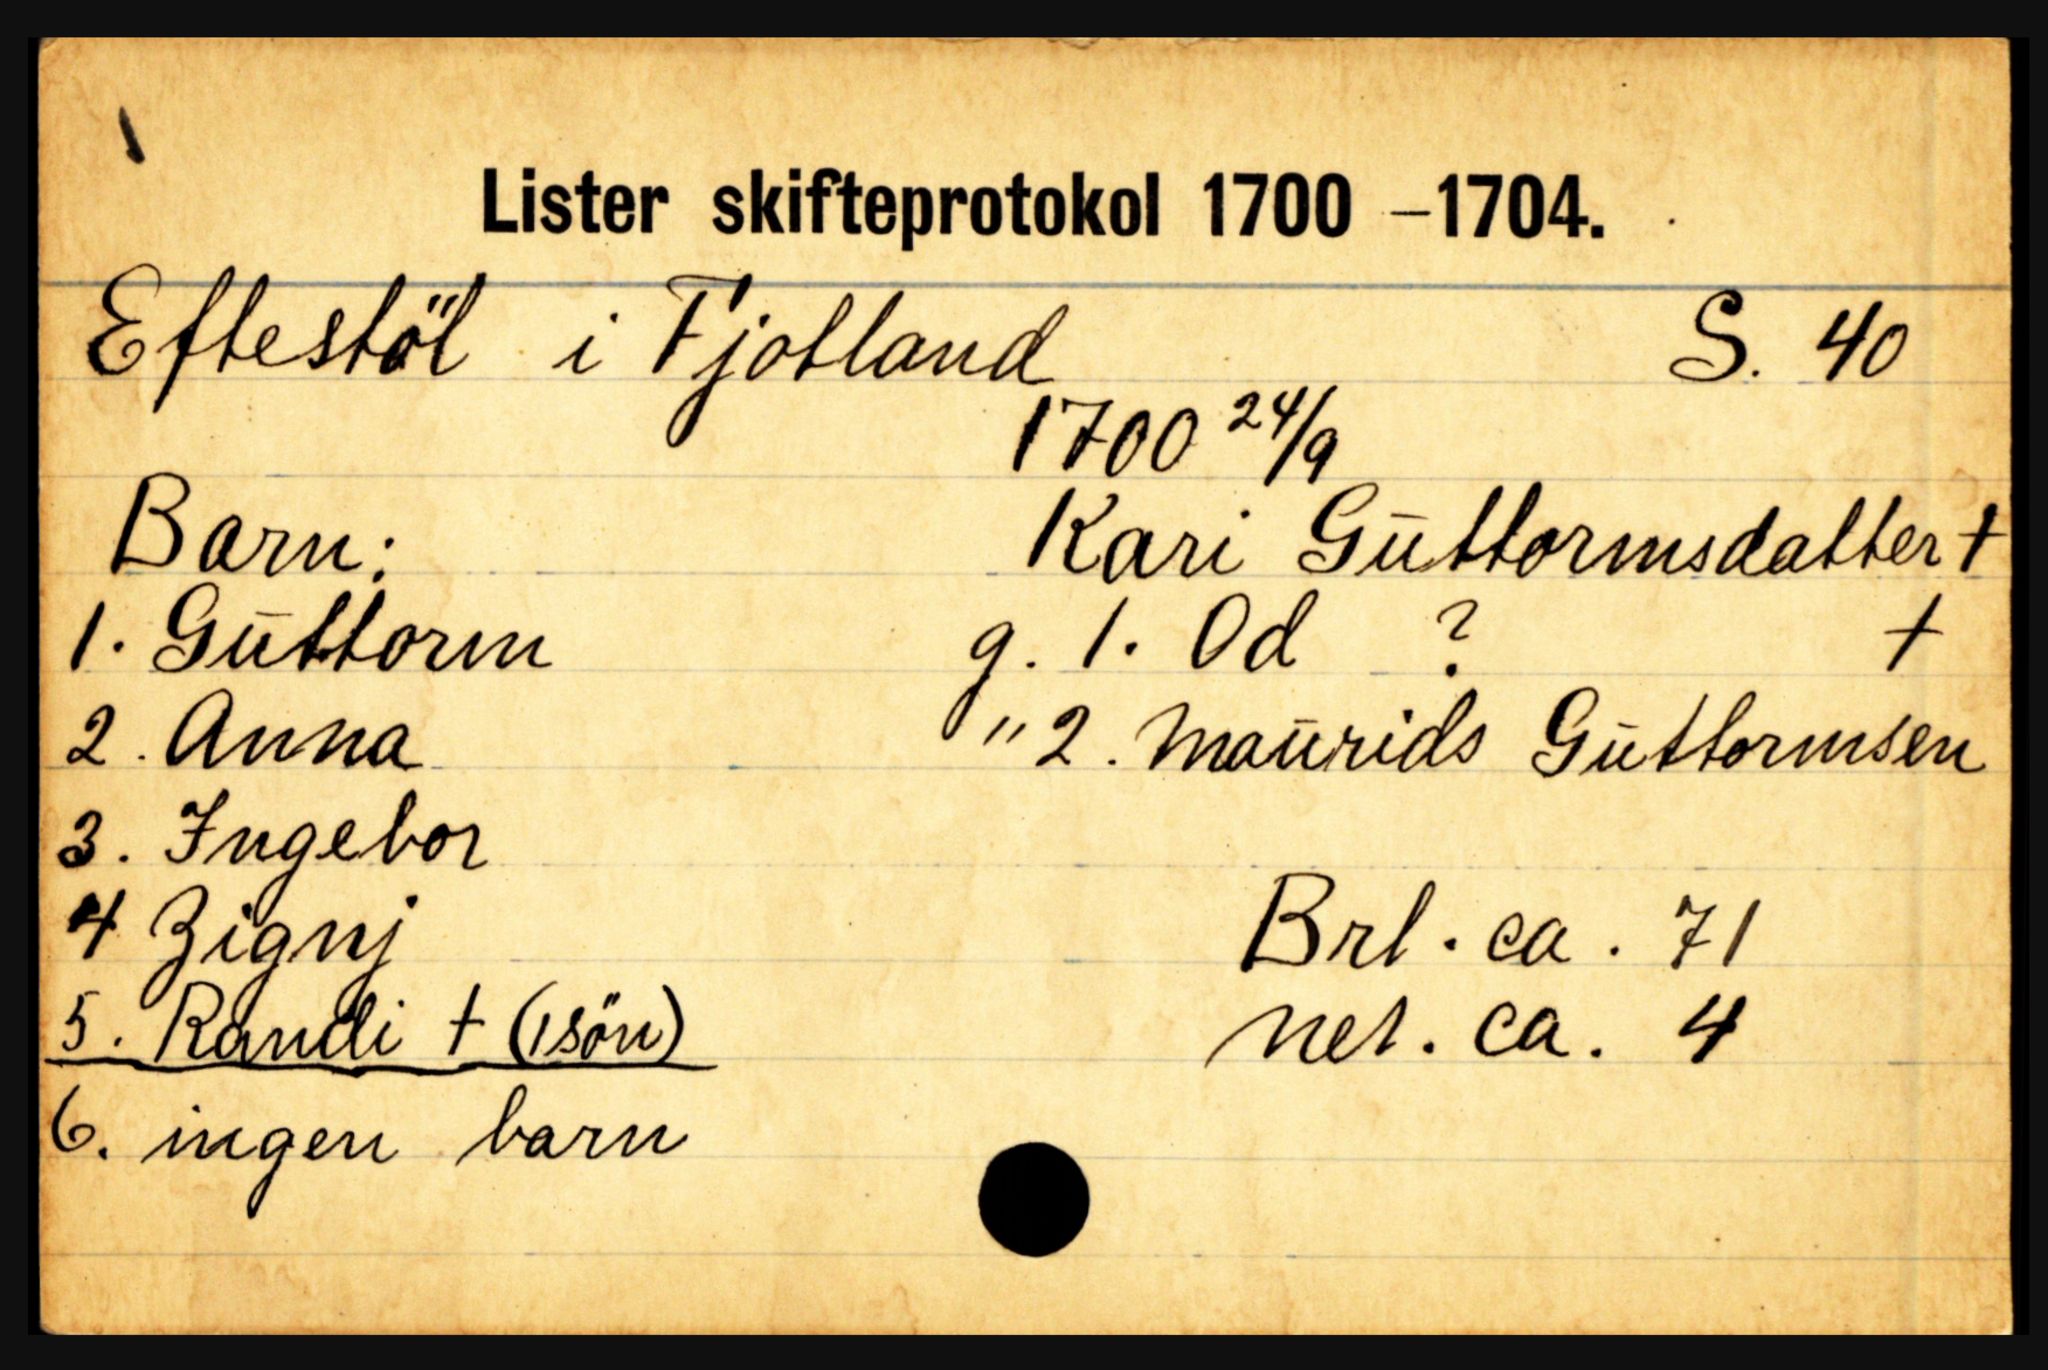 Lister skifteprotokol 1700 – 1704.
Eftestöl i Fjotland S. 40
1700 24/9
Barn: Kari Guttormsdatter †
1. Guttorm g. 1. Od ? †
2. Anna " 2. Maurids Guttormsen
3. Ingebor
4 Zignj Brl. ca. 71
5. Randi † (1 sön) net. ca. 4
6. ingen barn